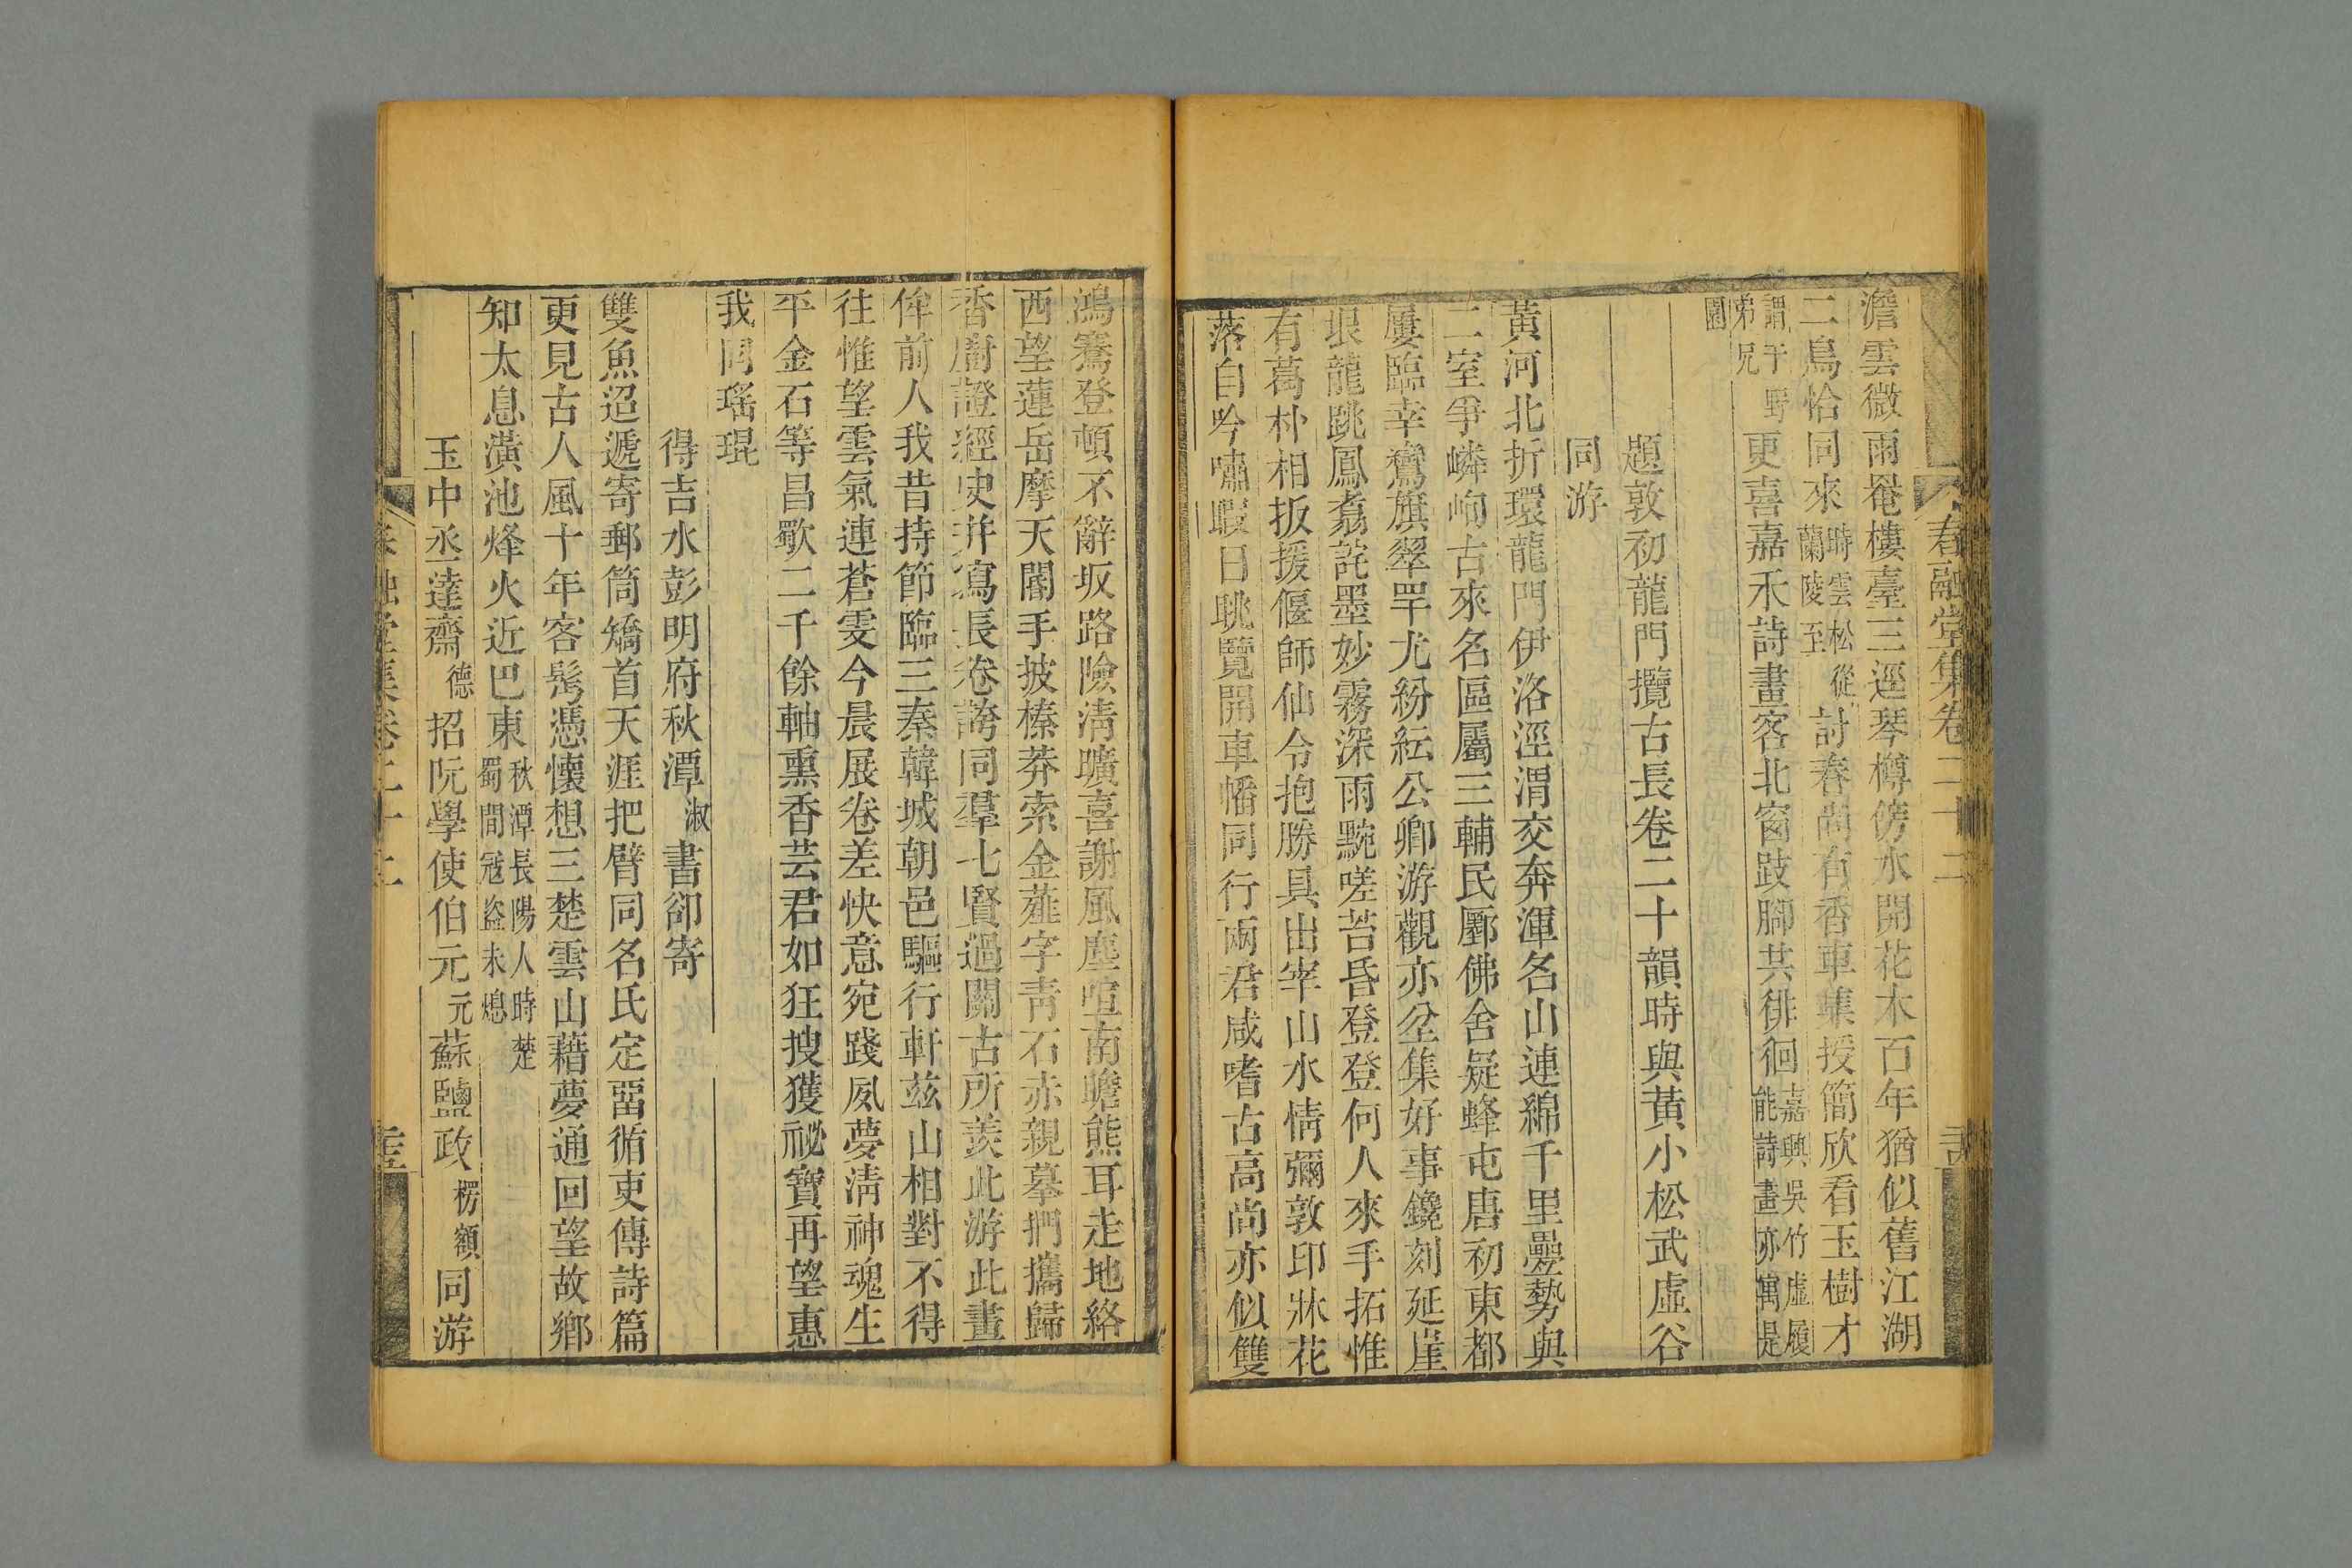 春融堂集卷二十二
澹雲微雨罨樓臺三逕琴樽傍水開花木百年猶似舊江湖
二鳥恰同來時雲松從蘭陵至討春尚有香車集授簡欣看玉樹才
謂于野弟兄更喜嘉禾詩畫客北窗跂腳共徘徊嘉興吳竹虛履能詩畫亦寓是
園
題敦初龍門攬古長卷二十韻時與黃小松武虛谷
同游
黃河北折環龍門伊洛涇渭交奔渾名山連綿千里疊勢與
二室爭嶙峋古來名區屬三輔民廛佛舍疑蜂屯唐初東都
屢臨幸鸞旗翠罕尤紛紜公卿游觀亦坌集好事鑱刻延崖
垠龍跳鳳翥詫墨妙霧深雨黦嗟苔昏登登何人來手拓惟
有葛朴相扳援偃師仙令抱勝具出宰山水情彌敦印牀花
落自吟嘯暇日眺覽開車幡同行兩君咸嗜古高尚亦似雙
鴻騫登頓不辭坂路險淸曠喜謝風塵喧南瞻熊耳走地絡
西望蓮岳摩天閽手披榛莽索金薤字靑石赤親摹捫攜歸
香廚證經史并寫長卷誇同羣七賢過關古所羡此游此畫
侔前人我昔持節臨三秦韓城朝邑驅行軒玆山相對不得
往惟望雲氣連蒼雯今晨展卷差快意宛踐夙夢淸神魂生
平金石等昌歜二千餘軸熏香芸君如狂搜獲祕寶再望惠
我同瑤琨
得吉水彭明府秋潭淑書卻寄
雙魚迢遞寄郵筒矯首天涯把臂同名氏定畱循吏傳詩篇
更見古人風十年客髩憑懷想三楚雲山藉夢通回望故鄉
知太息潢池烽火近巴東秋潭長陽人時楚蜀間冦盜未熄
玉中丞達齋德招阮學使伯元元蘇鹽政楞額同游